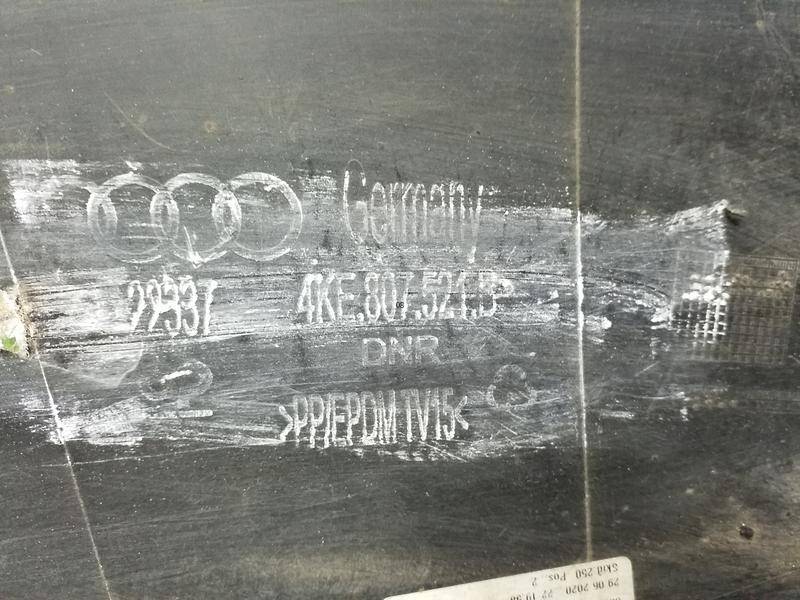 Germany
4KE.807.521.B
DNR
>PP/EPDM TV15<
29 06 2020 22 19 38
Skid 250 Pos. 2